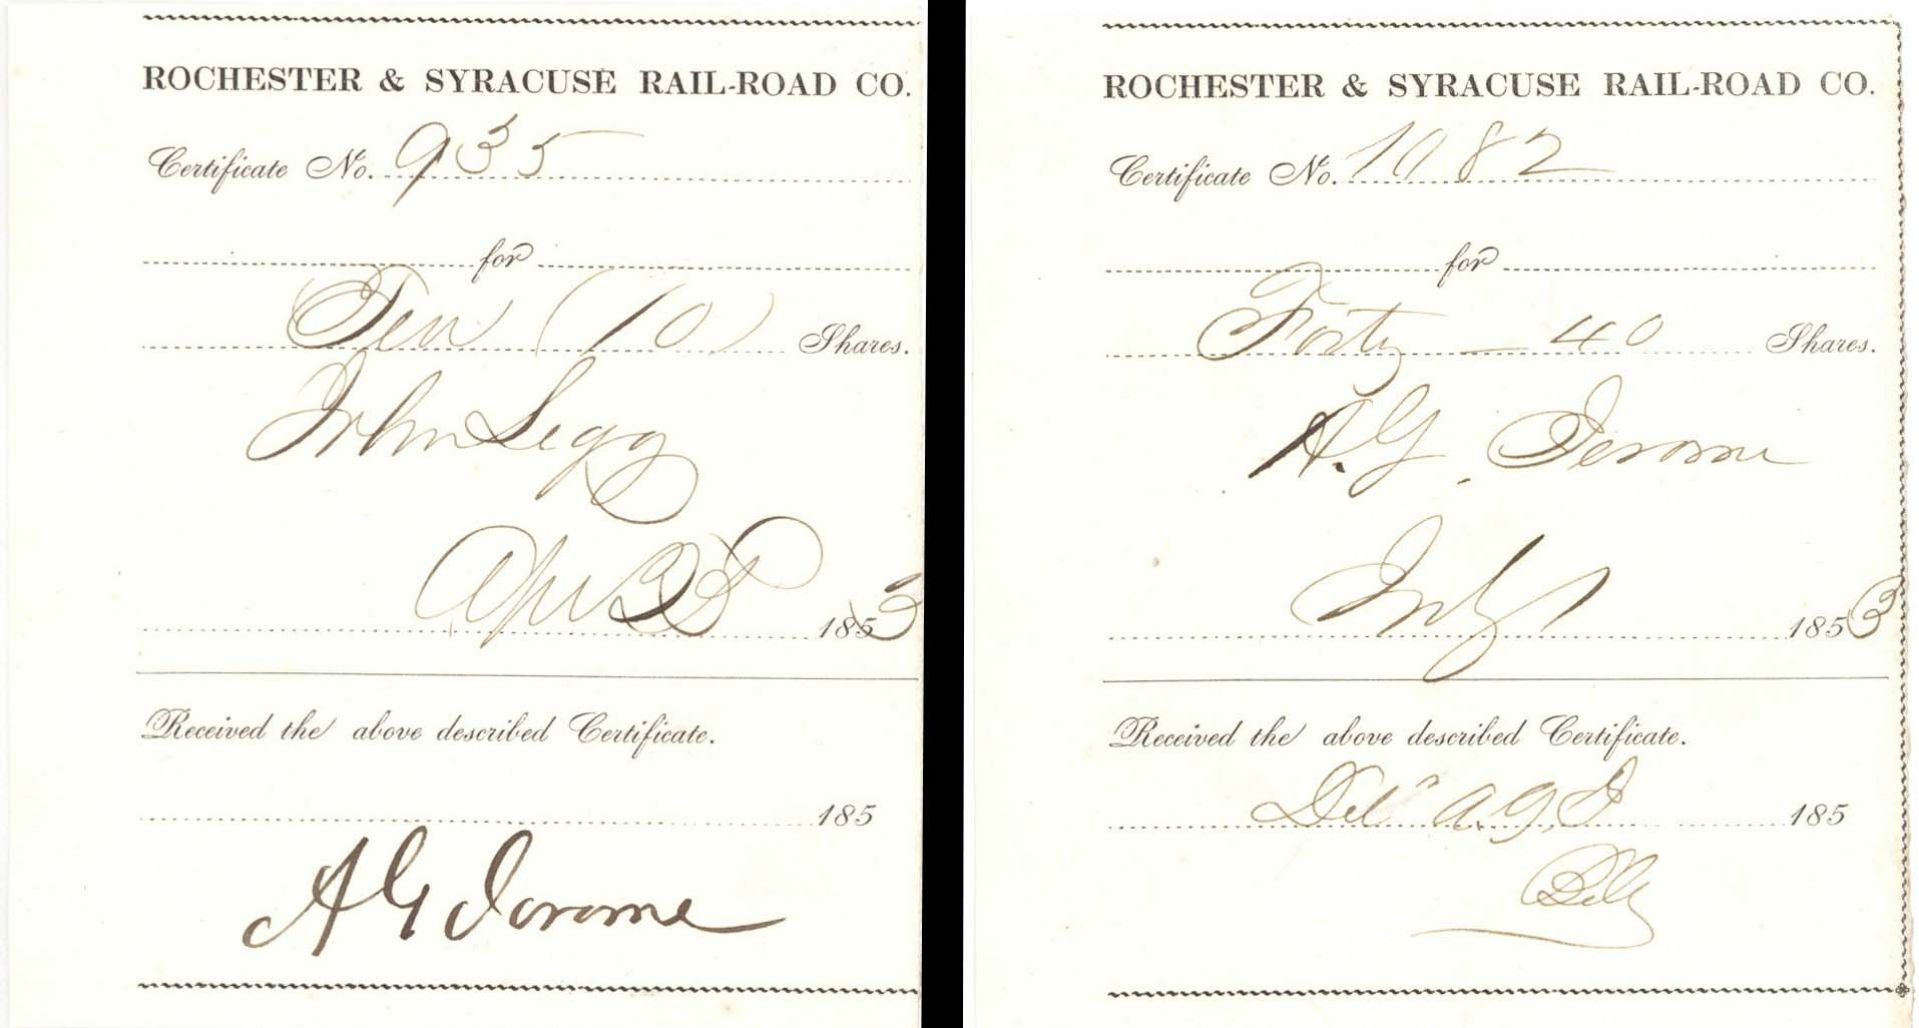 ROCHESTER & SYRACUSE RAIL-ROAD CO.
Certificate No. 935
for
Ten (10) Shares.
John Legg
Apr 28 1853
Received the above described Certificate.
185
A G Jerome
ROCHESTER & SYRACUSE RAIL-ROAD CO.
Certificate No. 1082
for
Forty — 40 Shares.
A. G. Jerome
July 1 1853
Received the above described Certificate.
Del A. G. J 185